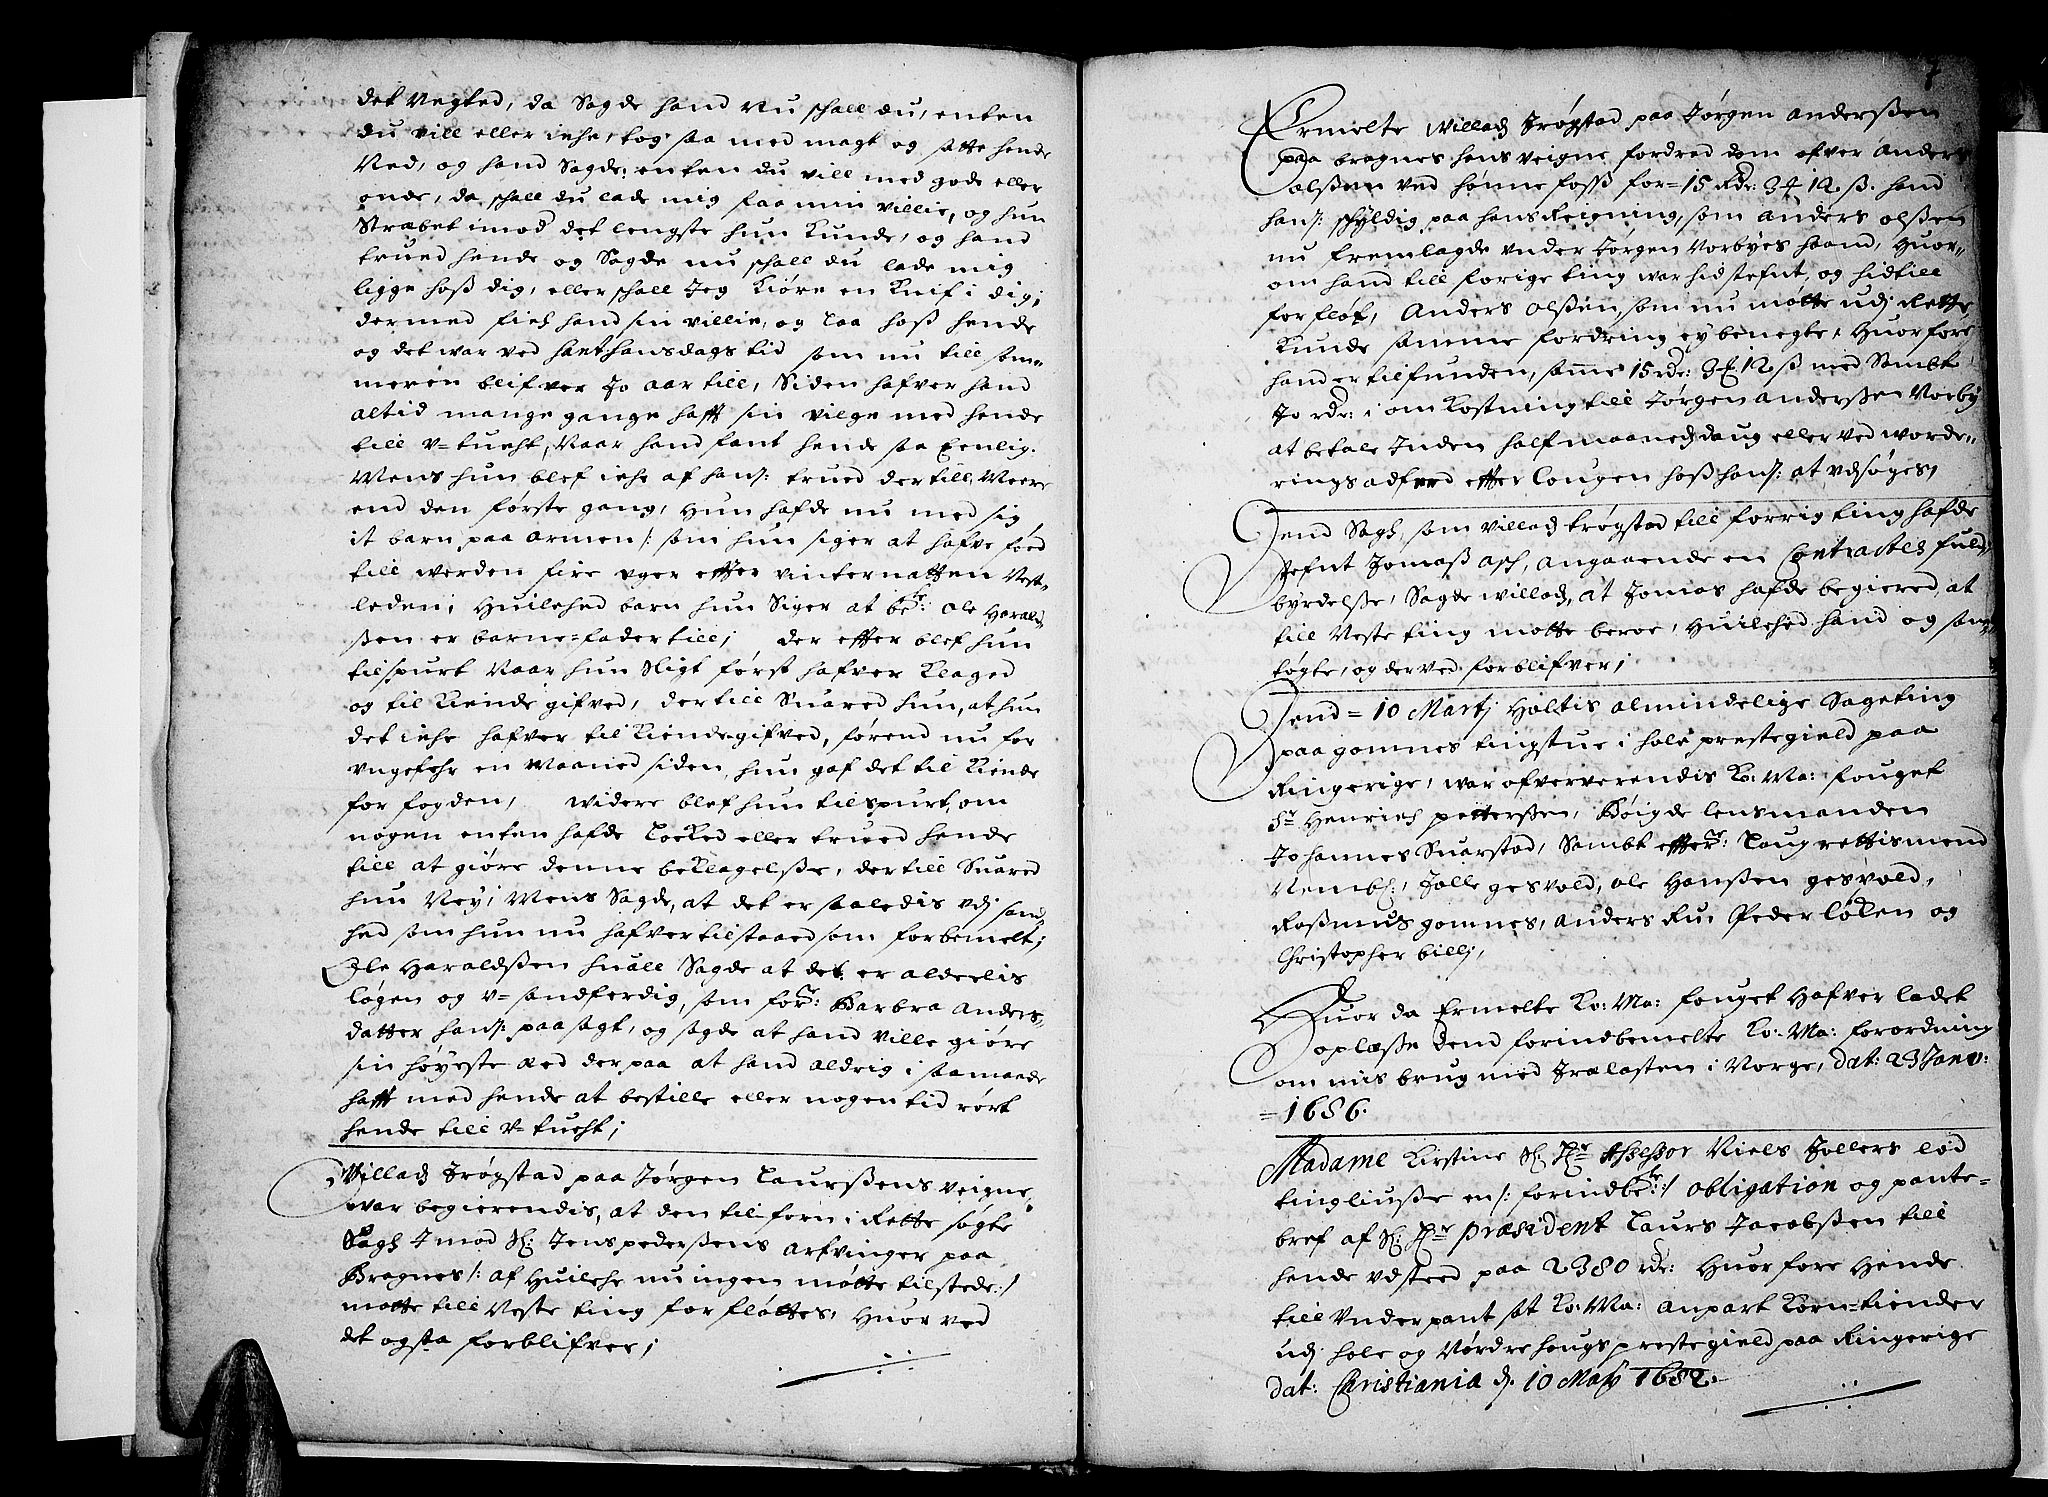 det Negted, da Sagde hand Nu schall du, enten
du vill eller iche, tog saa med magt og satte hende
Ned, og hand Sagde: enten du vill med gode eller
onde, da schall du lade mig faa min villie, og hun
Stræbet imod det lengste hun kunde, og hand
trued hende og Sagde nu schall du lade mig
ligge hoß dig, eller schall Jeg kiøre en Knif i dig;
dermed fich hand sin villie, og laa hoß hende
og det war ved sanct hansdags tid som nu till som„
meren blifver Jo aar till, Siden hafver hand
altid mange gange hafft sin vilge med hende
till v=tucht, Naar hand fant hende saa Eenlig.
Mens hun blef iche af hans: trued der till Meere
end den første gang, Hun hafde nu med sig
it barn paa armen /: som hun siger at hafve fød
till werden fire uger effter vinternatten Nest„
leden; Huilched barn hun Siger at ber: Ole Harald„
ßen er barne=fader till; der effter blef hun
tilspurt Naar hun sligt først hafver klaged
og til kiende gifved, der till Suared hun, at hun
det iche hafver til kiende gifved, førend nu for
ungefehr en Maaned siden, hun gaf det til kiende
for fogden, widere blef hun tilspurt, om
nogen enten hafde locked eller trued hende
till at giøre denne beklagelße, der till Suared
hun Ney; Mens Sagde, at det er saaledis udj sand
hed som hun nu hafver tilstaaed som forbemelt;
Ole Haraldßen huall Sagde at det er alderlis
løgen og v=sandferdig, som forr: Barbra Anders„
datter hans: paasagt, og sagde at hand ville giøre
sin høyeste æed der paa at hand aldrig i saamaade
hafft med hende at bestille eller nogen tid rørt
hende till v=tucht;
Willads Trøgstad paa Jørgen Laurßens veigne
war begierendis, at den tilforn i Rette søgte
Sagh Imod Sl: Jens pederßens arfvinger paa
Bragnes /: af Huilche nu ingen møtte tilstede :/
motte till Neste ting forfløttes, Huor ved
det ogsaa forblifver;
7
Ermelte Willads Trøgstad paa Jørgen Anderßen
paa bragnes hans veigne fordred dom ofver Anders
olßen ved hønnefoss for= 15 Rdr: 3 12 ß: hand
hans: schyldig paa hans Reigning, som Anders olßen
nu fremlagde under Jørgen Vorbyes haand, Huor„
om hand till forige ting war hid stefnt, og hid till
forfløt, Anders olßen, som nu møtte udj Rette,
kunde samme fordring ey benegte, Huor fore
hand er tilfunden, samme 15 rdr: 3 12 ß med Sambt
Jo rdr: i omkostning till Jørgen anderßen Vorby
at betale Inden half maaneds daug eller ved worde„
rings adferd effter Lougen hoß hans: at udsøges,
Dend Sagh som Willads trøgstad till forrig ting hafde
stefnt Jomaß ask, angaaende en Contractes fuld
byrdelße, Sagde willads, at Jomas hafde begiered, at
till Neste ting motte beroe, Huilched hand og sam„
tøgte, og der ved forblifver;
Dend = 10 Martj Holtis almindelige Sageting
paa gomnes tingstue i hole prestegield paa
Ringerige, war ofververendis Ko: Ma: fouget
Sr Henrich petterßen, Bøigde lensmanden
Johannes Suarstad, Sambt effter: Laugrettismend
Nembl:, Jolle gesvold, ole Hanßen gesvold,
Raßmus gomnes, Anders Ru, Peder løken og
Christopher billj,
Huor da Ermelte Ko: Ma: fouget Hafver ladet
oplæße dend forindbemelte Ko: Ma: forordning
om misbrug med Trælasten i Norge, dat: 23 Janv:
=1686.
Madame Kirstine Sl: Hr Assessor Niels Jollers lod
tingliuße en /: forindber: / obligation og pante=
bref af Sl: Hr Præsident Laurs Jacobßen till
hende udsteed paa 2380 rdr: Huor fore Hende
till Underpant sat Ko: Ma: anpart Korn=tiender
udj hole og Nordrehougs prestegield paa Ringerige
dat: Christiania d. 10 Maij 1682.